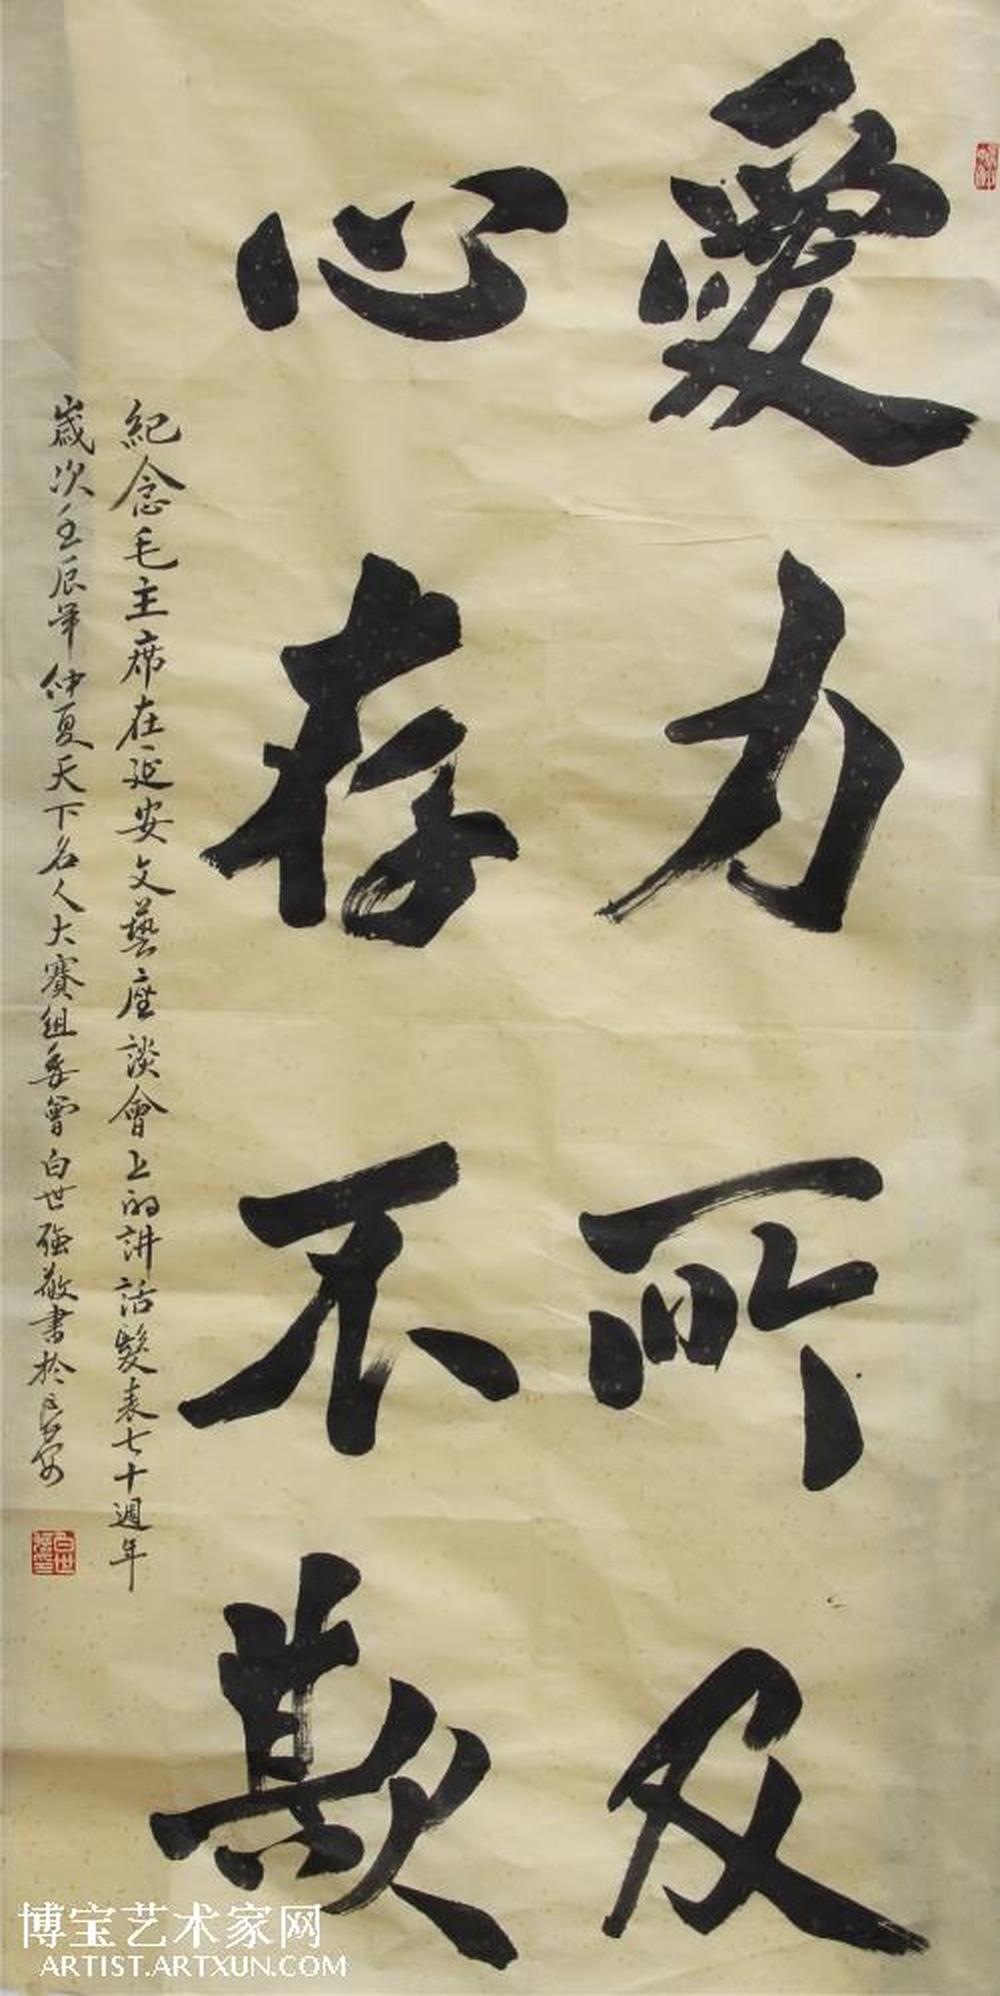 愛力所及
心存不欺
紀念毛主席在延安文藝座談會上的讲话發表七十週年
歲次壬辰年仲夏天下名人大赛組委會白世強敬書於長安
白世強印
博宝艺术家网
ARTIST.ARTXUN.COM